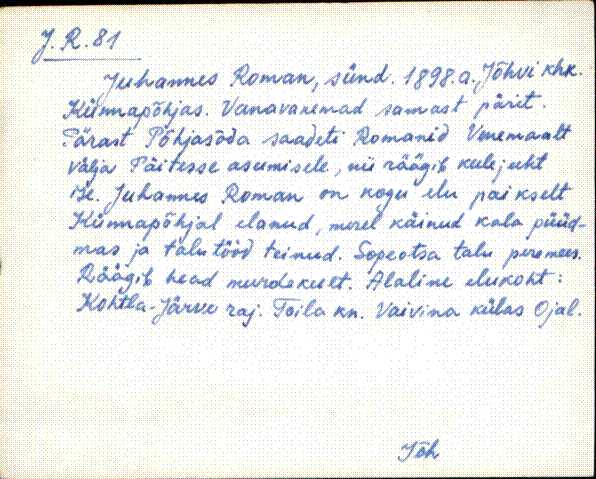 J. R. 81
Juhannes Roman, sünd. 1898.a. Jõhvi khk.
Künnapõhjas. Vanavanemad samast pärit.
Pärast Põhjasõda saadeti Romanid Venemaalt
välja Päitesse asumisele, nii räägib keelejuht
ise. Juhannes Roman on kogu elu paikselt
Künnapõhjal elanud, merel käinud kala püüd-
mas ja talutööd teinud. Sopeotsa talu peremees.
Räägib head murdekeelt. Alaline elukoht:
Kohtla-Järve raj. Toila kn. Vaivina külas Ojal.
Jõh